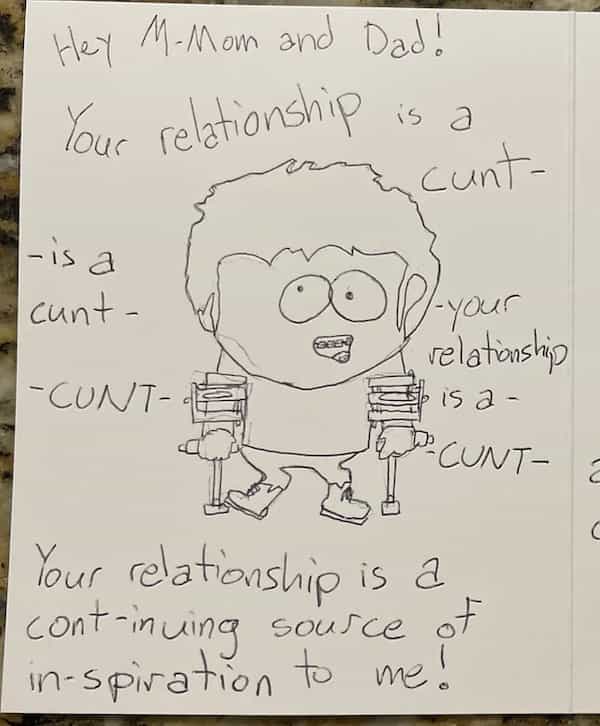 Hey M-Mom and Dad!
Your relationship is a
cunt-
-is a
cunt-
-CUNT-
-your
relationship
is a-
-CUNT-
Your relationship is a
cont-inuing source of
in-spiration to me!